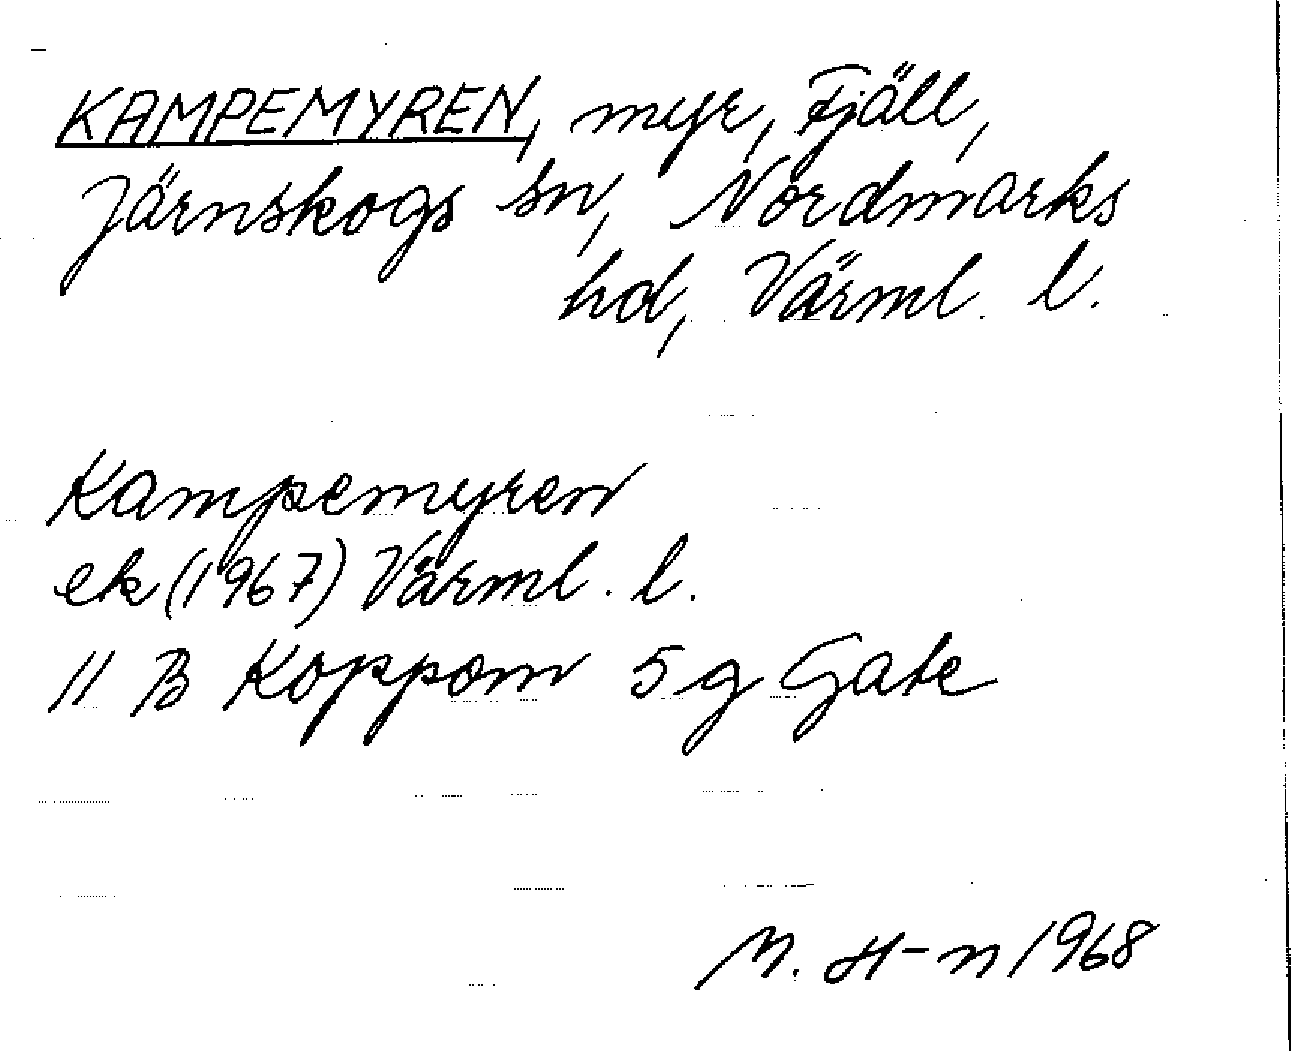 KAMPEMYREN, myr, Fjäll,
Järnskogs sn, Nordmarks
hd, Värml. l.
Kampemyren
ek (1967) Värml. l.
11 B Koppom 5 g Gate
M. H-n 1968